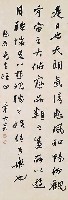 是日也天朗氣清惠風和暢仰觀
宇宙之大俯察品類之盛所以遊
目騁懷足以極視聽之娛